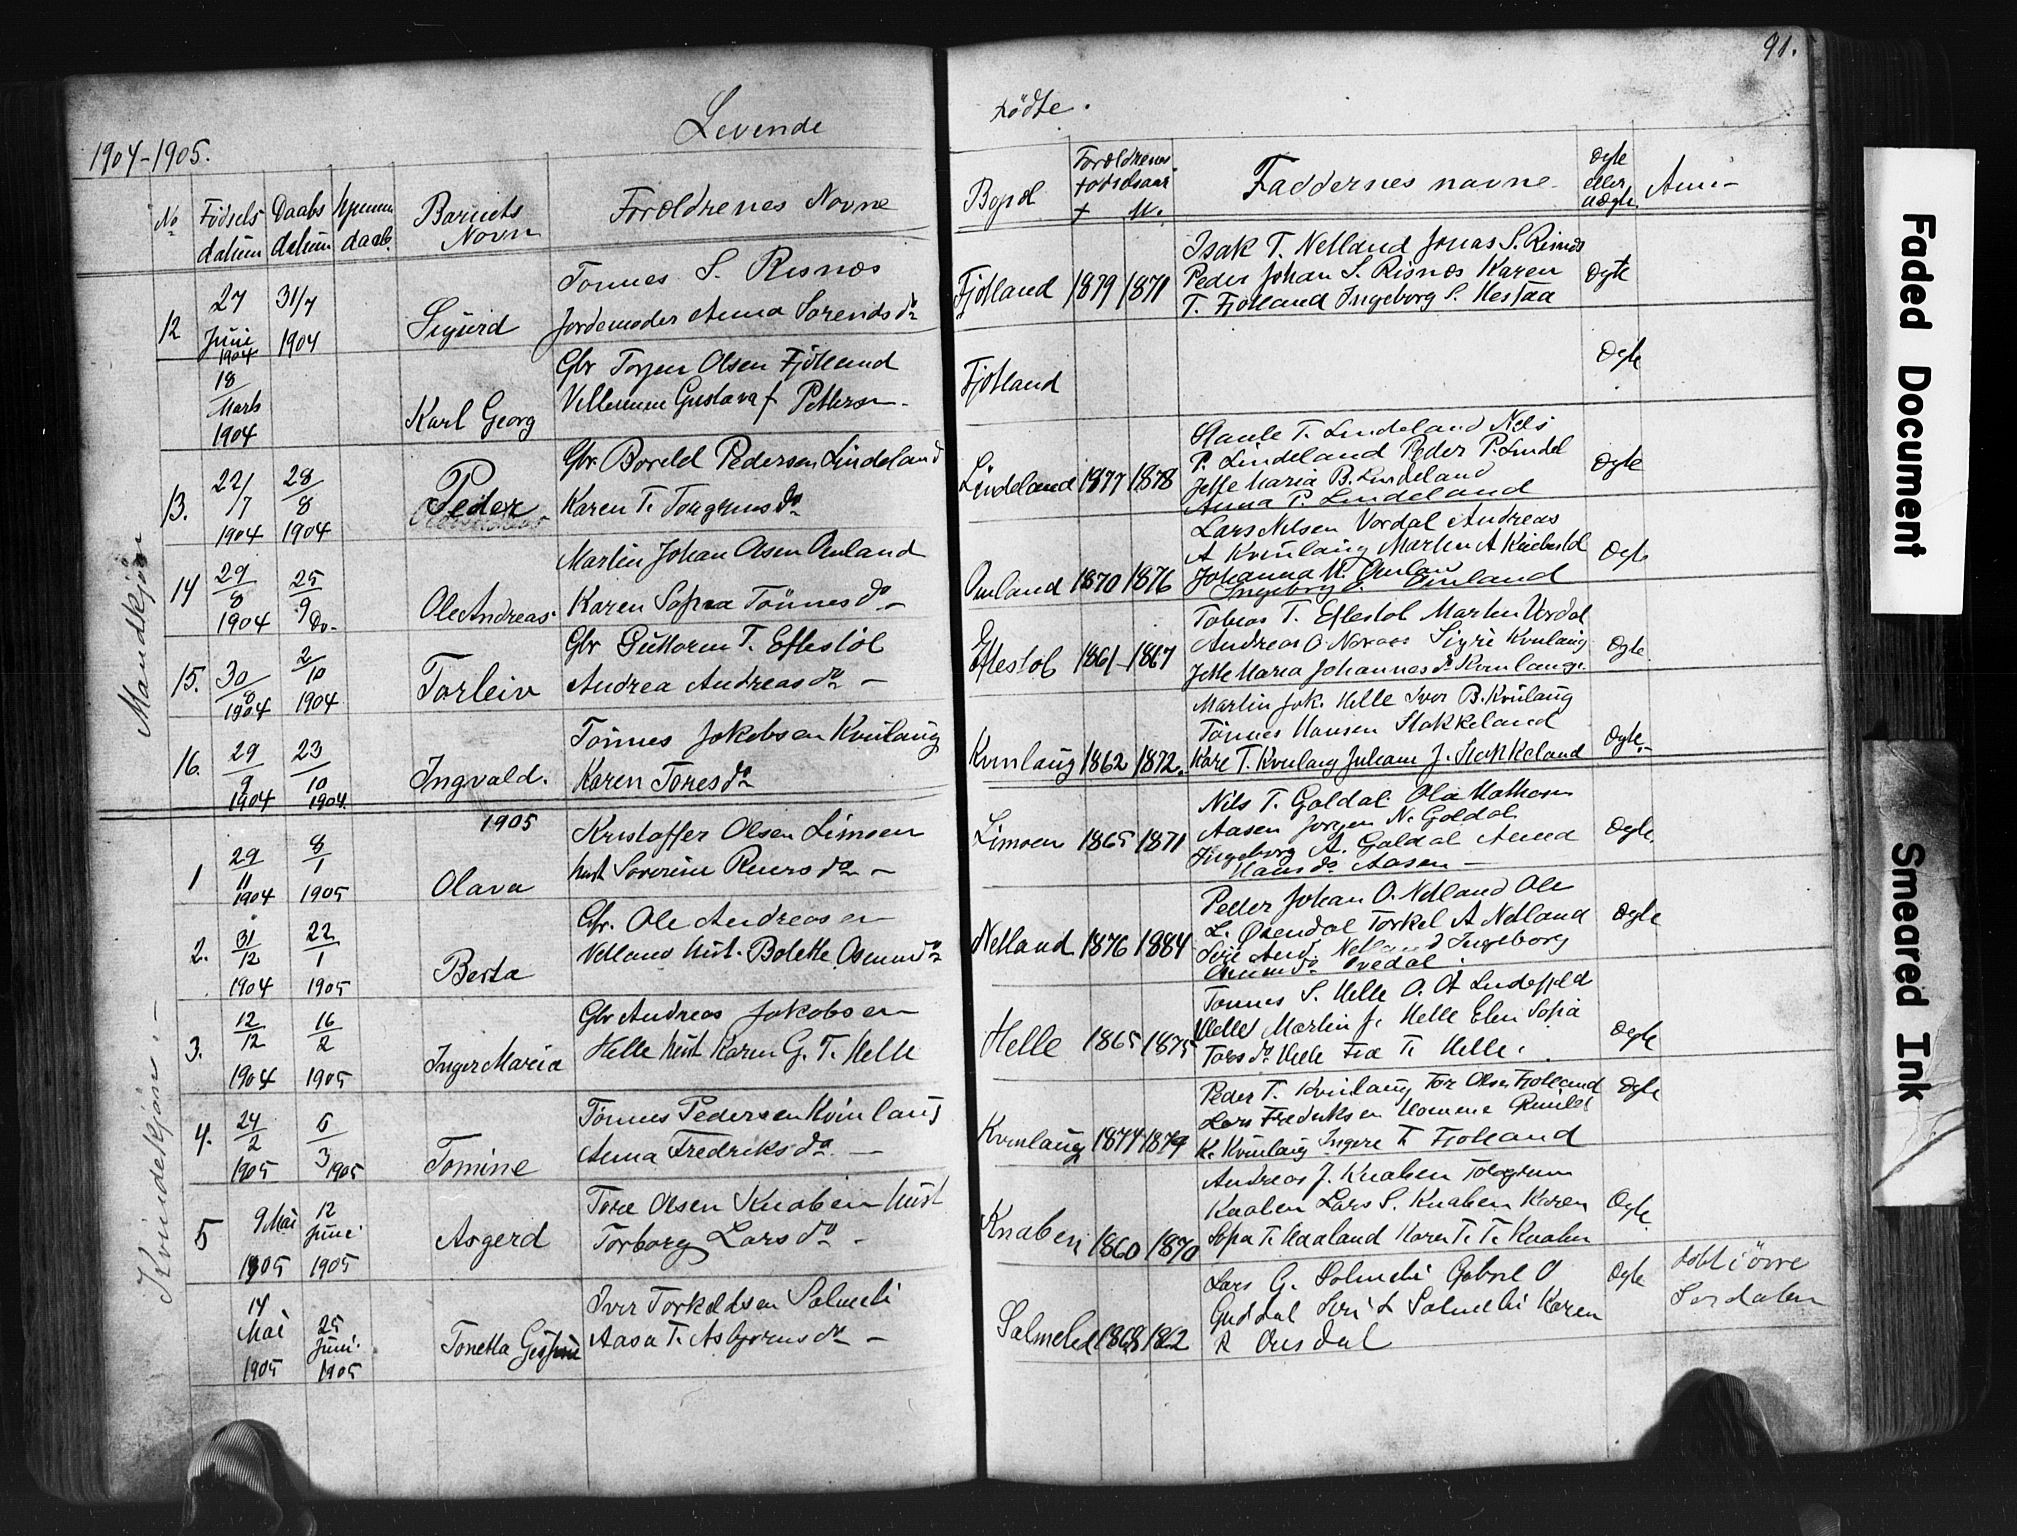 91.
Levende
Fødte.
1904-1905.
No
Fødsels
datum
Daabs
datum
daab.
Barnets
Navn
Forældrenes Navne
Bopel
Forældrenes
Fødselsaar
+ M.
Faddernes navne
Ægte
eller
uægte.
Anm-
Mandkjøn
12
27
Juni
1904
31/7
1904
Sigurd
Tønnes S. Risnes
Jordemoder Anna Sørensdr
Fjotland 1879 1871
Isak T. Netland Jonas S. Risnes
Peder Johan S. Risnes Karen
T. Fjotland Ingeborg S. Kestaa
Ægte
18
Marts
1904
Karl Georg
Gbr Torjer Olsen Fjotland
Gustava f Pettersen
Fjotland
Ægte
13.
22/
7
1904
28
8
1904
Peder
Gbr. Boreld Pedersen Lindeland
Karen T. Torgrimsdr
Lindeland 1877 1878
T. Lindeland Nils
P. Lindeland Peder P. Lindel
Jette Maria B. Lindeland
Anna P. Lindeland
Ægte
14
29
8
1904
25
9
Do-
Ole Andreas
Martin Johan Olsen Omland
Karen Sofia Tønnesdr -
Omland 1870 1876
Lars Nilsen Vordal Andreas
A Kvinlaug Martin A
Johanna K. Omlan
Ingeborg E. Omland
Ægte
15.
30
8
1904
2
10
1904
Torleiv
Gbr Guttorm T. Eftestøl
Andrea Andreasdr -
Eftestøl 1861 1867
Tobias T. Eftestøl Martin Vordal
Andreas O. Sigri Kvinlaug
Jette Maria Johannesdr Kvinlaug.
Ægte
16.
29
9
1904
23
10
1904.
Ingvald.
Tønnes Jakobsen Kvinlaug
Karen Toresdr
Kvinlaug 1862 1872.
Martin Jak. Helle Iver B. Kvinlaug
Tønnes Hansen Stakkeland
Kare T. Kvinlaug J. Stakkeland
Ægte.
1905
Kvindekjøn. -
1
29
11
1904
8
1
1905
Olava
Kristoffer Olsen Limoen
hust Severine -
Limoen 1865 1871
Nils T. Goldal
Aasen Jørgen N. Goldal
Ingeborg A. Goldal Anna
Hansdr Aasen -
Ægte.
2.
31
12
1904
22
1
1905
Berta
Gbr. Ole Andreasen
Netland hust. Bolette Osmundr
Netland 1876 1884
Peder Johan O. Netland Ole
L. Torkel A Netland
Netland Ingeborg
Ægte
3.
12
12
1904
16
2
1905
Inger Maria
Gbr Andreas Jakobsen
Helle hust Karen G. T. Helle
Helle 1865 1875
Tønnes S. Helle O. A Lindefjeld
Helle Martin J. Helle Elen Sofia
Torsdr Helle T. Helle.
Ægte
4.
24
2
1905
6
3 1905
Tomine
Tønnes Pedersen Kvinlaug
Anna Fredriksdr. -
Kvinlaug 1874 1879
Peder T. Kvinlaug Tor Olsen Fjotland
Lars Fredriksen Homme
K. Kvinlaug Ingere T. Fjotland
Ægte
5
9 Mai
1905
12
Juni
1905
Asgerd
Tore Olsen Knaben hust
Torborg Larsdr -
Knaben 1860 1870
Andreas J. Knaben
Knaben Lars S. Knaben Karen
Sofia T. Haaland Karen T. T. Knaben
Ægte.
14
Mai
1905
25
Juni.
1905
Tonetta
Iver Torkeldsen Salmeli
Aasa T. Asbjørnsdr -
Salmeli 1868 1862
Lars G. Salmeli Gabriel O
Guddal Siri L Salmeli Karen
R Ousdal
Ægte
Sirdalen
Faded Document
Smeared Ink